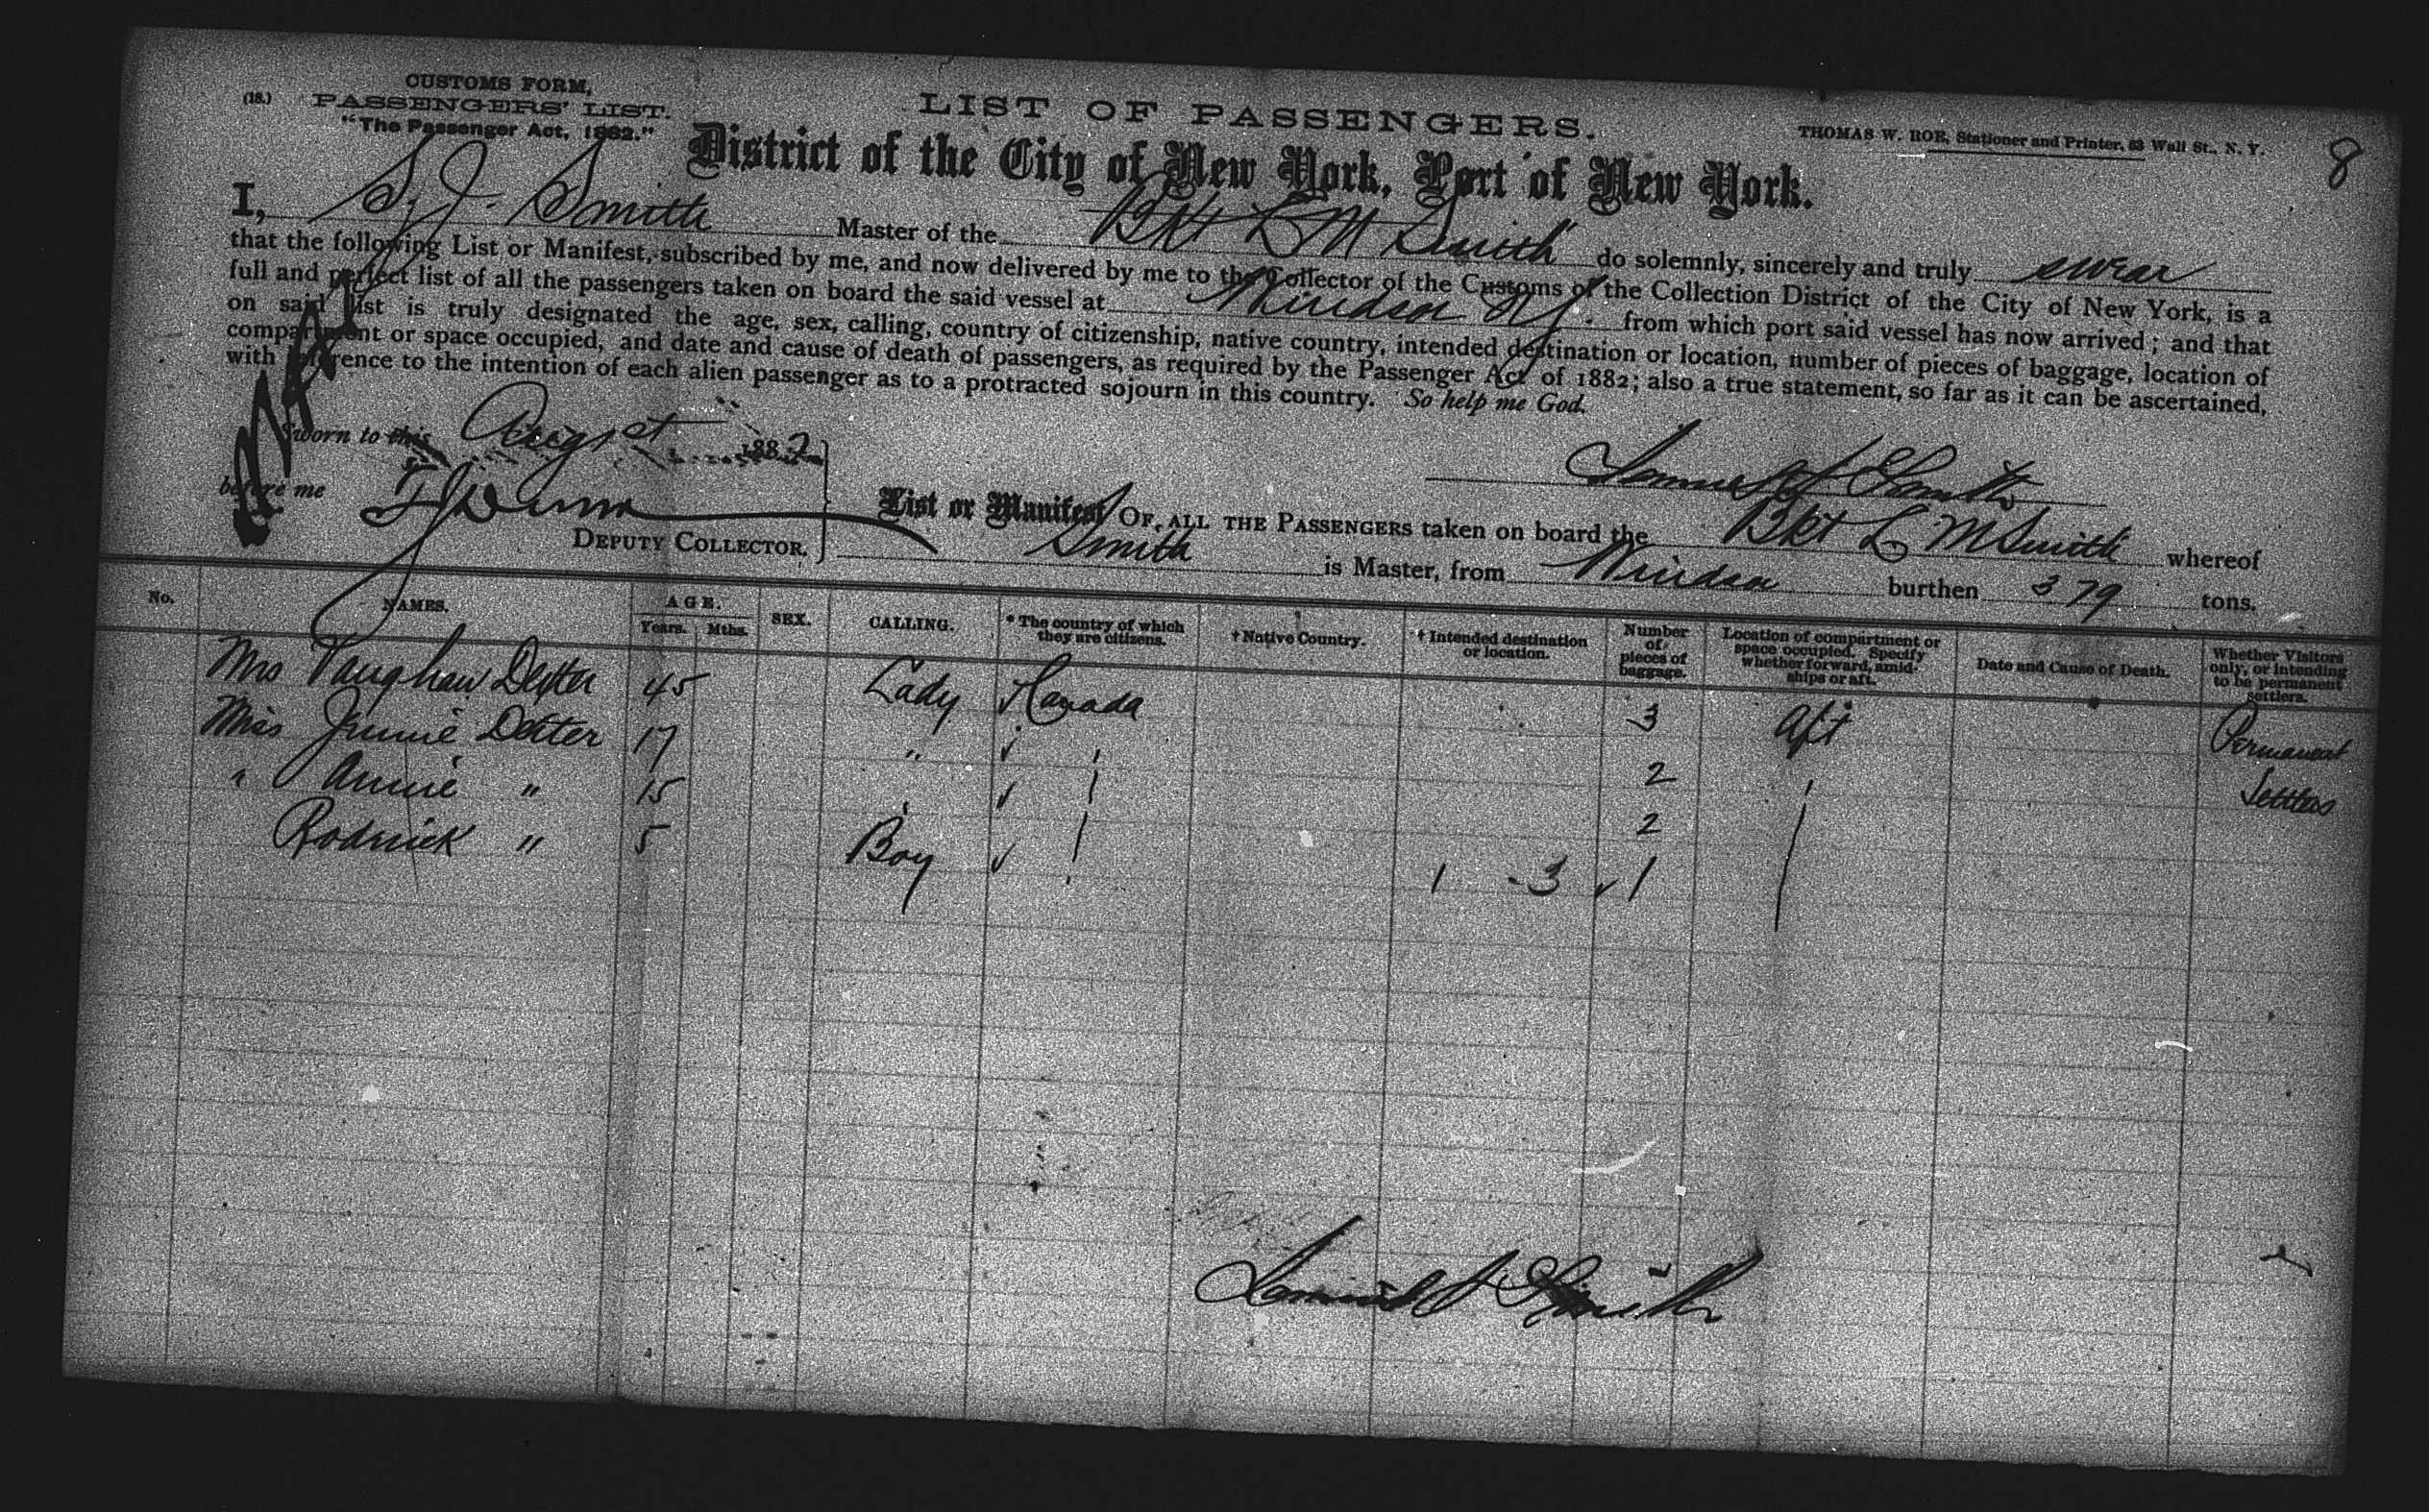 CUSTOMS FORM,
(18.) PASSENGERS' LIST.
"The Passenger Act, 1882."
LIST OF PASSENGERS.
THOMAS W. ROE, Stationer and Printer, 53 Wall St., N. Y.
8
District of the City of New York, Port of New York.
I, S. J. Smith Master of the Bkt L M Smith do solemnly, sincerely and truly swear
that the following List or Manifest, subscribed by me, and now delivered by me to the Collector of the Customs of the Collection District of the City of New York, is a
full and perfect list of all the passengers taken on board the said vessel at Windsor N S. from which port said vessel has now arrived; and that
on said list is truly designated the age, sex, calling, country of citizenship, native country, intended destination or location, number of pieces of baggage, location of
compartment or space occupied, and date and cause of death of passengers, as required by the Passenger Act of 1882; also a true statement, so far as it can be ascertained,
with reference to the intention of each alien passenger as to a protracted sojourn in this country. So help me God.
Sworn to this August 1882
Samuel J Smith
before me
DEPUTY COLLECTOR.
List or Manifest OF ALL THE PASSENGERS taken on board the Bkt L M Smith whereof
Smith is Master, from Windsor burthen 379 tons.
No. NAMES. AGE. Years. Mths. SEX. CALLING. * The country of which they are citizens. † Native Country. † Intended destination or location. Number of pieces of baggage. Location of compartment or space occupied. Specify whether forward, amidships or aft. Date and Cause of Death. Whether Visitors only, or intending to be permanent settlers.
Mrs Vaughan Dexter 45 Lady Canada 3 Aft Permanent
Miss Jennie Dexter 17 " ✓ 2 Settlers
" Annie " 15 ✓ 2
Rodrick " 5 Boy ✓ 1 - 3 ✓ 1
Samuel J Smith